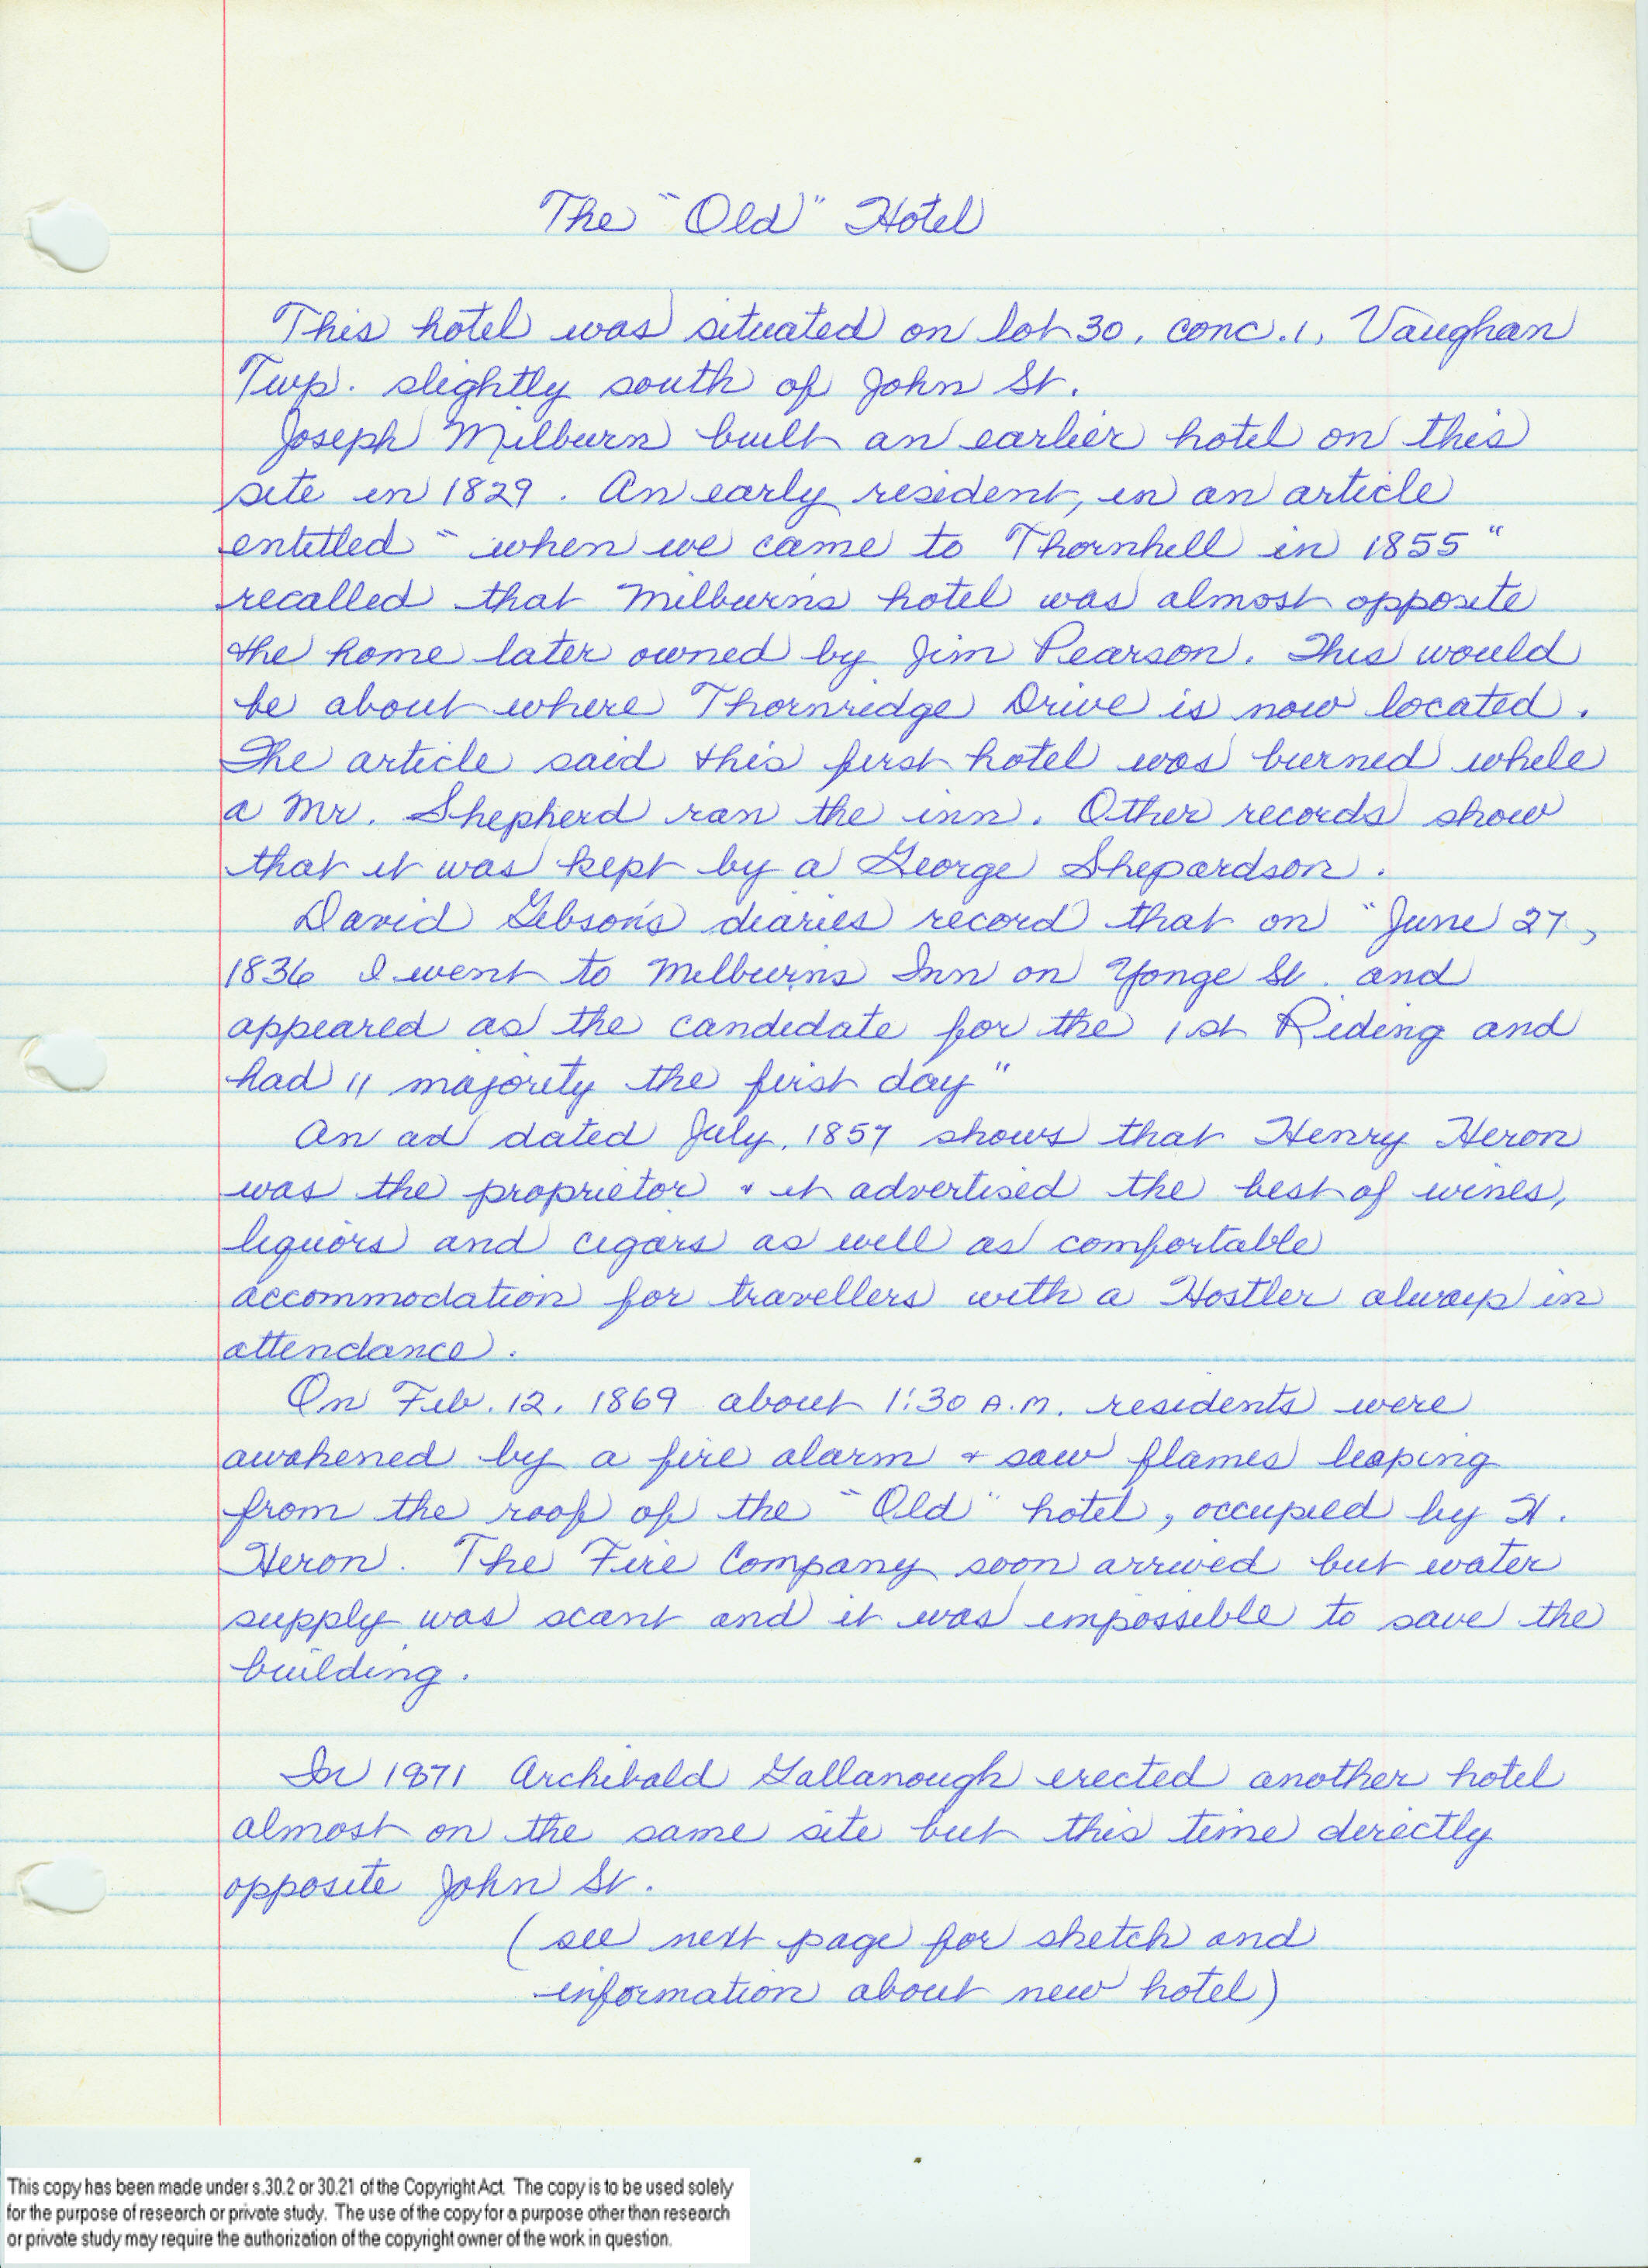 The "Old" Hotel
This hotel was situated on lot 30, conc. 1, Vaughan
Twp. slightly south of John St.
Joseph Milburn built an earlier hotel on this
site in 1829. An early resident, in an article
entitled "when we came to Thornhill in 1855"
recalled that Milburns hotel was almost opposite
the home later owned by Jim Pearson. This would
be about where Thornridge Drive is now located.
The article said this first hotel was burned while
a Mr. Shepherd ran the inn. Other records show
that it was kept by a George Shepardson.
David Gibson's diaries record that on "June 27,
1836 I went to Milburns Inn on Yonge St. and
appeared as the candidate for the 1st Riding and
had 11 majority the first day"
An ad dated July, 1857 shows that Henry Heron
was the proprietor & it advertised the best of wines,
liquors and cigars as well as comfortable
accommodation for travellers with a Hostler always in
attendance.
On Feb. 12, 1869 about 1:30 A.M. residents were
awakened by a fire alarm & saw flames leaping
from the roof of the "Old" hotel, occupied by H.
Heron. The Fire Company soon arrived but water
supply was scant and it was impossible to save the
building.
In 1871 Archibald Gallanough erected another hotel
almost on the same site but this time directly
opposite John St.
(see next page for sketch and
information about new hotel)
This copy has been made under s.30.2 or 30.21 of the Copyright Act. The copy is to be used solely
for the purpose of research or private study. The use of the copy for a purpose other than research
or private study may require the authorization of the copyright owner of the work in question.